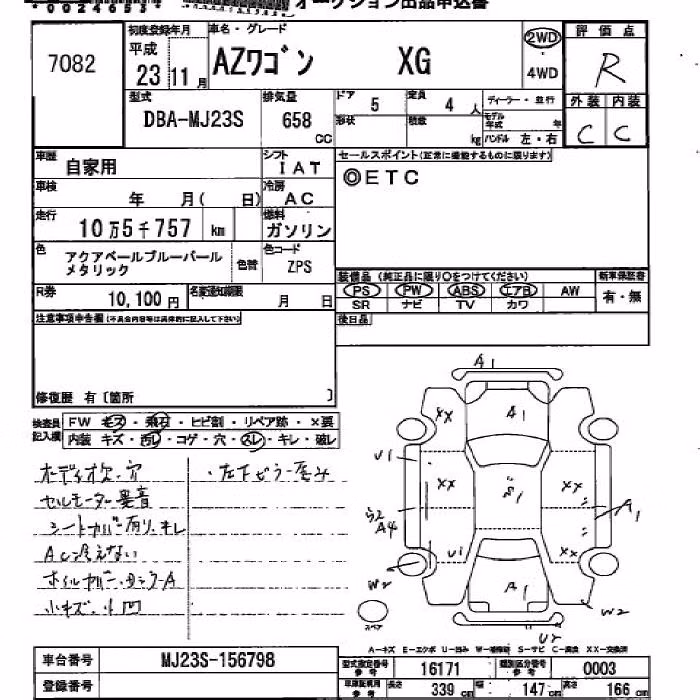 オークション出品申込書
7082
初度登録年月 車名・グレード 2WD 評価点
平成 23 11月 AZワゴン XG 4WD R
型式 排気量 ドア 5 定員 4人 ディーラー・並行 外装 内装
DBA-MJ23S 658 CC 形状 積載 kg モデル年式 年 ハンドル 左・右 C C
車歴 自家用 シフト IAT セールスポイント(正常に機能するものに限ります)
車検 年 月( 日) 冷房 AC ◎ETC
走行 10万5千757 km 燃料 ガソリン
色 アクアペールブルーパール 色替 色コード
メタリック ZPS 装備品(純正品に限り○をつけてください) 新車保証書
R券 10,100円 名変通知期限 月 日 PS PW ABS エアB AW 有・無
SR ナビ TV カワ
注意事項申告欄(不具合内容等は具体的に記入して下さい) 後日品
修復歴 有〔箇所 〕
検査員 FW キズ・飛石・ヒビ割・リペア跡・×要
記入欄 内装 キズ・汚レ・コゲ・穴・スレ・キレ・破レ
オーディオ欠・穴 ・左下
セルモーター異音
シートカバー有り、キレ
AC冷えない
ホイルカバー
小キズ・小凹
A1
XX A1
U1
XX S1 XX A1
A4
U1 XX
W2 A1 W2
スペア U2
A-キズ E-エクボ U-凹み W-補修跡 S-サビ C-腐食 XX-交換済
車台番号 MJ23S-156798 型式指定番号 参考 16171 類別区分番号 参考 0003
登録番号 車庫証明用 参考 長さ 339 cm 幅 147 cm 高さ 166 cm